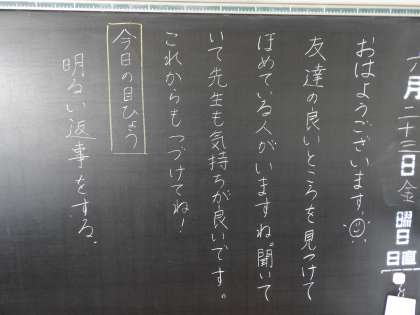 一月二十三日金曜日
日直
おはようございます
友達の良いところを見つけて
ほめている人がいますね。聞いて
いて先生も気持ちが良いです。
これからもつづけてね!
今日の目ひょう
明るい返事をする。